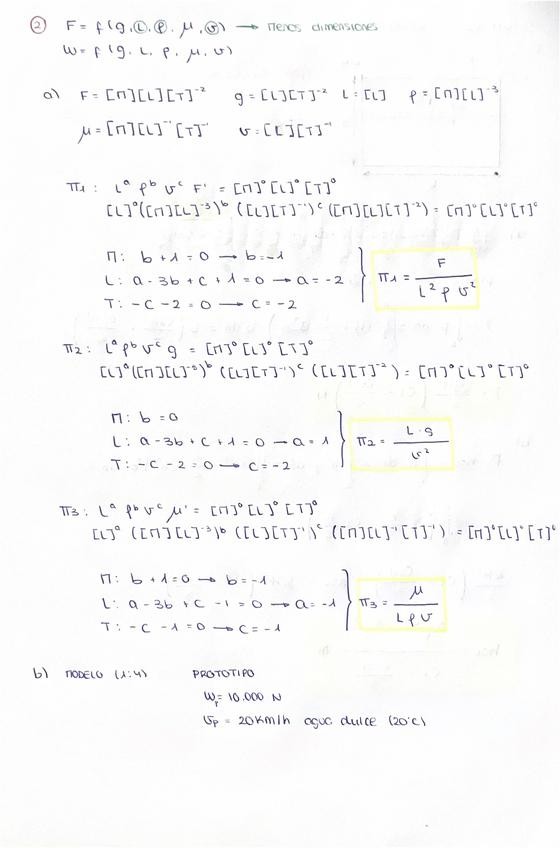 ② F = f(g, L, ρ, μ, v) → Menos dimensiones
W = f(g, L, ρ, μ, v)
a) F = [M][L][T]⁻² g = [L][T]⁻² L = [L] ρ = [M][L]⁻³
μ = [M][L]⁻¹[T]⁻¹ v = [L][T]⁻¹
π1: Lᵃ ρᵇ vᶜ F¹ = [M]⁰[L]⁰[T]⁰
[L]ᵃ([M][L]⁻³)ᵇ ([L][T]⁻¹)ᶜ ([M][L][T]⁻²) = [M]⁰[L]⁰[T]⁰
M: b + 1 = 0 → b = -1
L: a - 3b + c + 1 = 0 → a = -2
T: -c - 2 = 0 → c = -2
π1 = F / L² ρ v²
π2: Lᵃ ρᵇ vᶜ g = [M]⁰[L]⁰[T]⁰
[L]ᵃ([M][L]⁻³)ᵇ ([L][T]⁻¹)ᶜ ([L][T]⁻²) = [M]⁰[L]⁰[T]⁰
M: b = 0
L: a - 3b + c + 1 = 0 → a = 1
T: -c - 2 = 0 → c = -2
π2 = L · g / v²
π3: Lᵃ ρᵇ vᶜ μ¹ = [M]⁰[L]⁰[T]⁰
[L]ᵃ ([M][L]⁻³)ᵇ ([L][T]⁻¹)ᶜ ([M][L]⁻¹[T]⁻¹) = [M]⁰[L]⁰[T]⁰
M: b + 1 = 0 → b = -1
L: a - 3b + c - 1 = 0 → a = -1
T: -c - 1 = 0 → c = -1
π3 = μ / L ρ v
b) MODELO (1:4) PROTOTIPO
Wp = 10.000 N
vp = 20 km/h agua dulce (20°C)